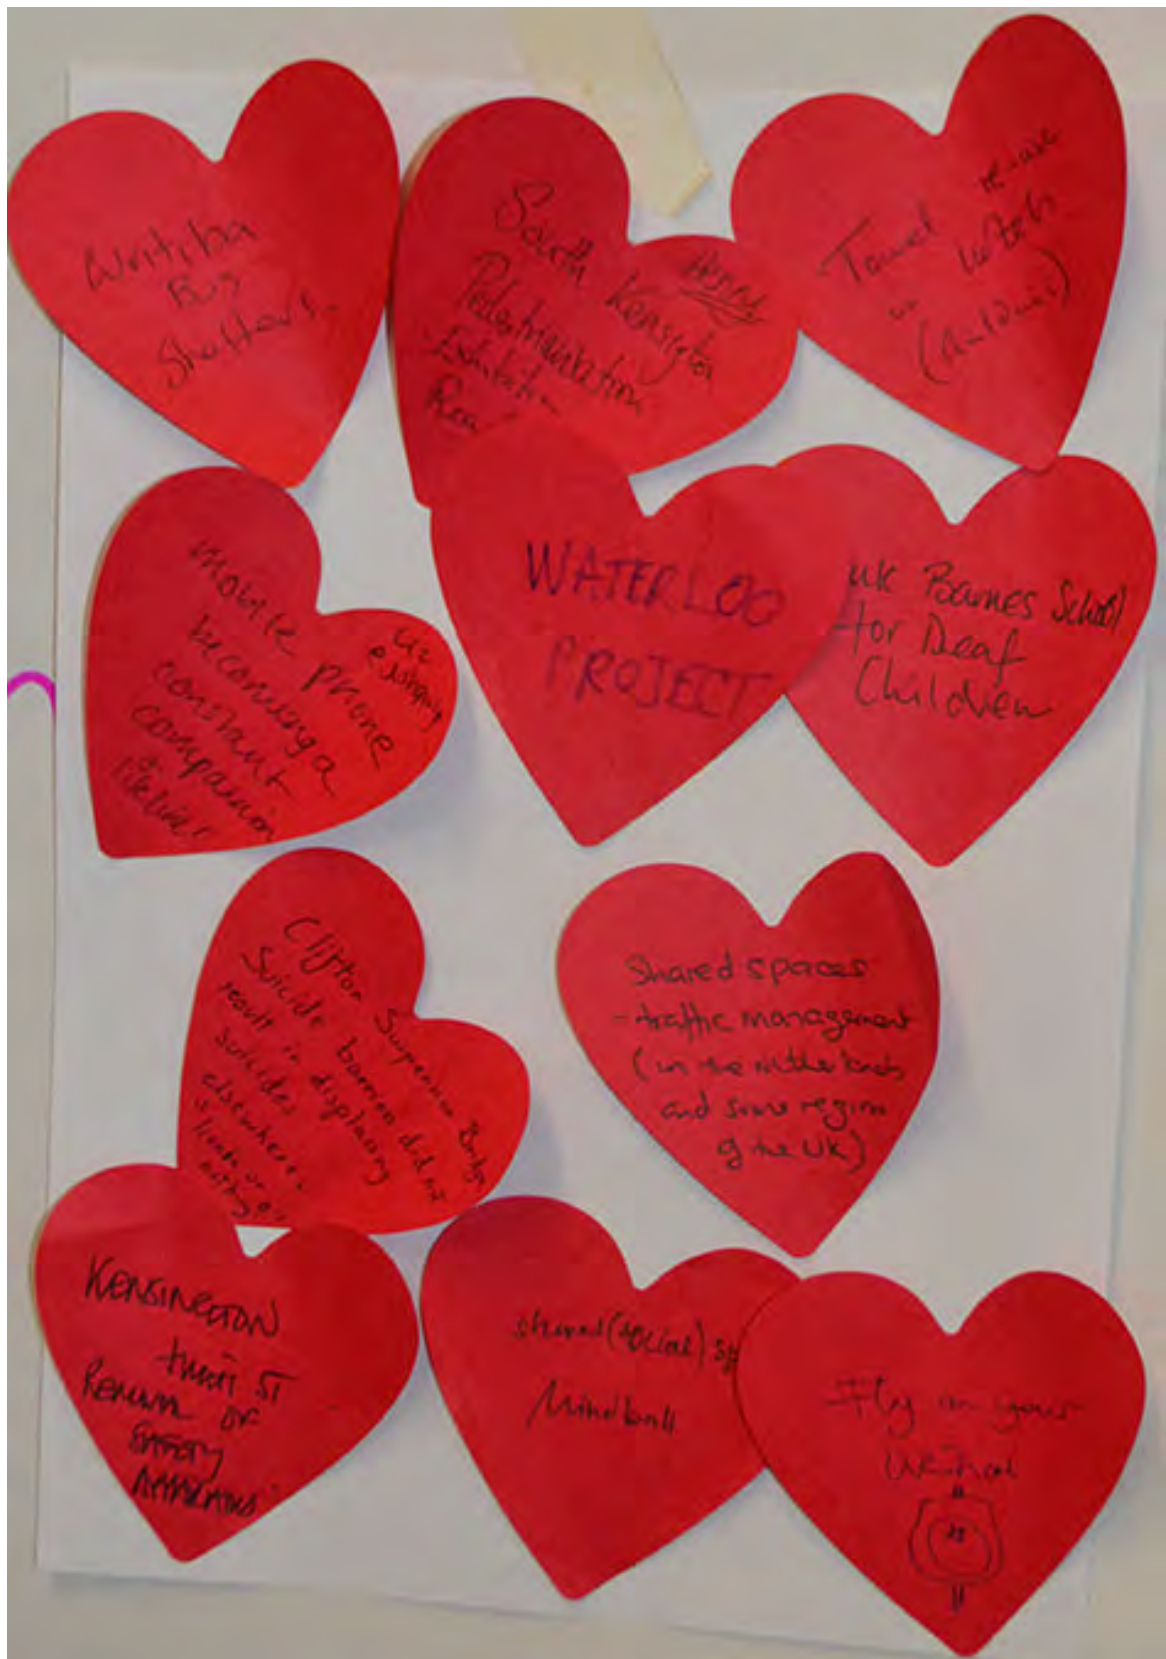 Bus
Shelters.
South Kensington
Pedestrianisation
Exhibition
Road
Towel re-use
in hotels
mobile phone
becoming a
constant
companion
WATERLOO
PROJECT
UK Barnes School
for Deaf
Children
Clifton Suspension Bridge
Suicide barriers did not
result in displacing
suicides
elsewhere
Shared spaces
- traffic management
(in the Netherlands
and some region
of the UK)
KENSINGTON
HIGH ST
REMOVAL OF
SAFETY
shared (social) sp
Mindball
Fly on your
Urinal